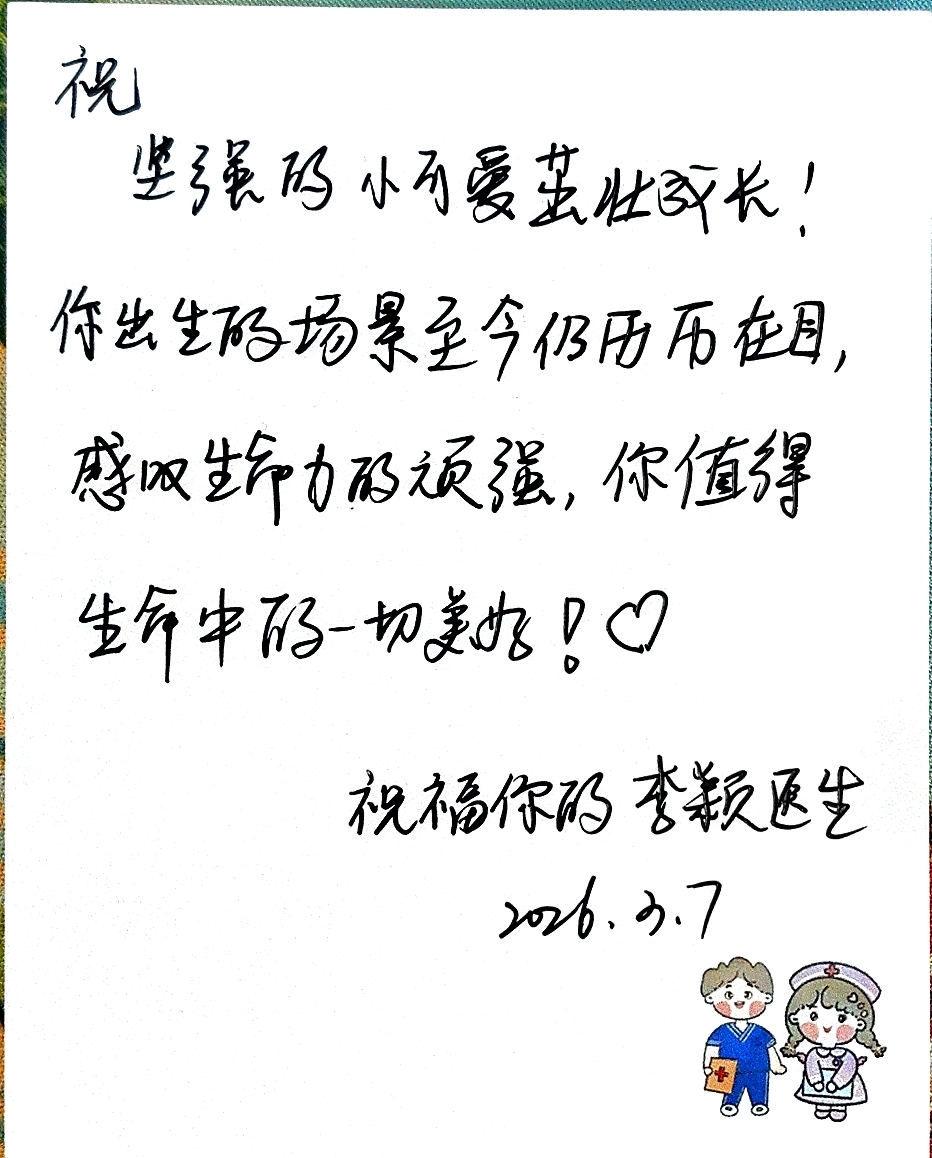 祝
坚强的小可爱茁壮成长!
你出生的场景至今仍历历在目,
感叹生命力的顽强,你值得
生命中的一切美好!♡
祝福你的李颖医生
2026.3.7